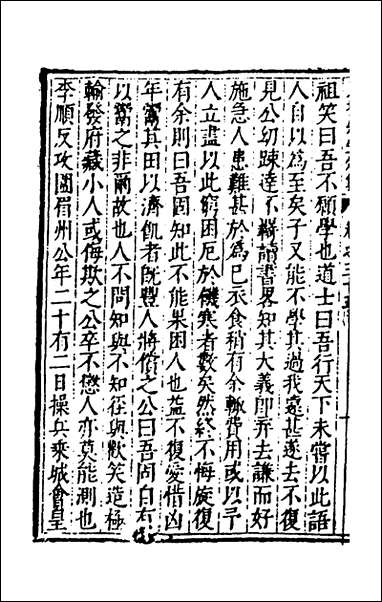 祖笑曰吾不願學也道士曰吾行天下未嘗以此語
人自以為至矣子又能不學其過我遠甚遂去不復
見公幼踈達不羈讀書畧知其大義即弃去謙而好
施急人患難甚於為已衣食稍有余輒費用或以予
人立盡以此窮困厄於饑寒者數矣然終不悔旋復
有余則曰吾固知此不能果困人也益不復愛惜凶
年鬻其田以濟飢者既豐人將償之公曰吾固自有
以鬻之非爾故也人不問知與不知徑與歡笑造極
輸發府藏小人或侮欺之公卒不懲人亦莫能測也
李順反攻圍眉州公年二十有二日操兵乘城會皇